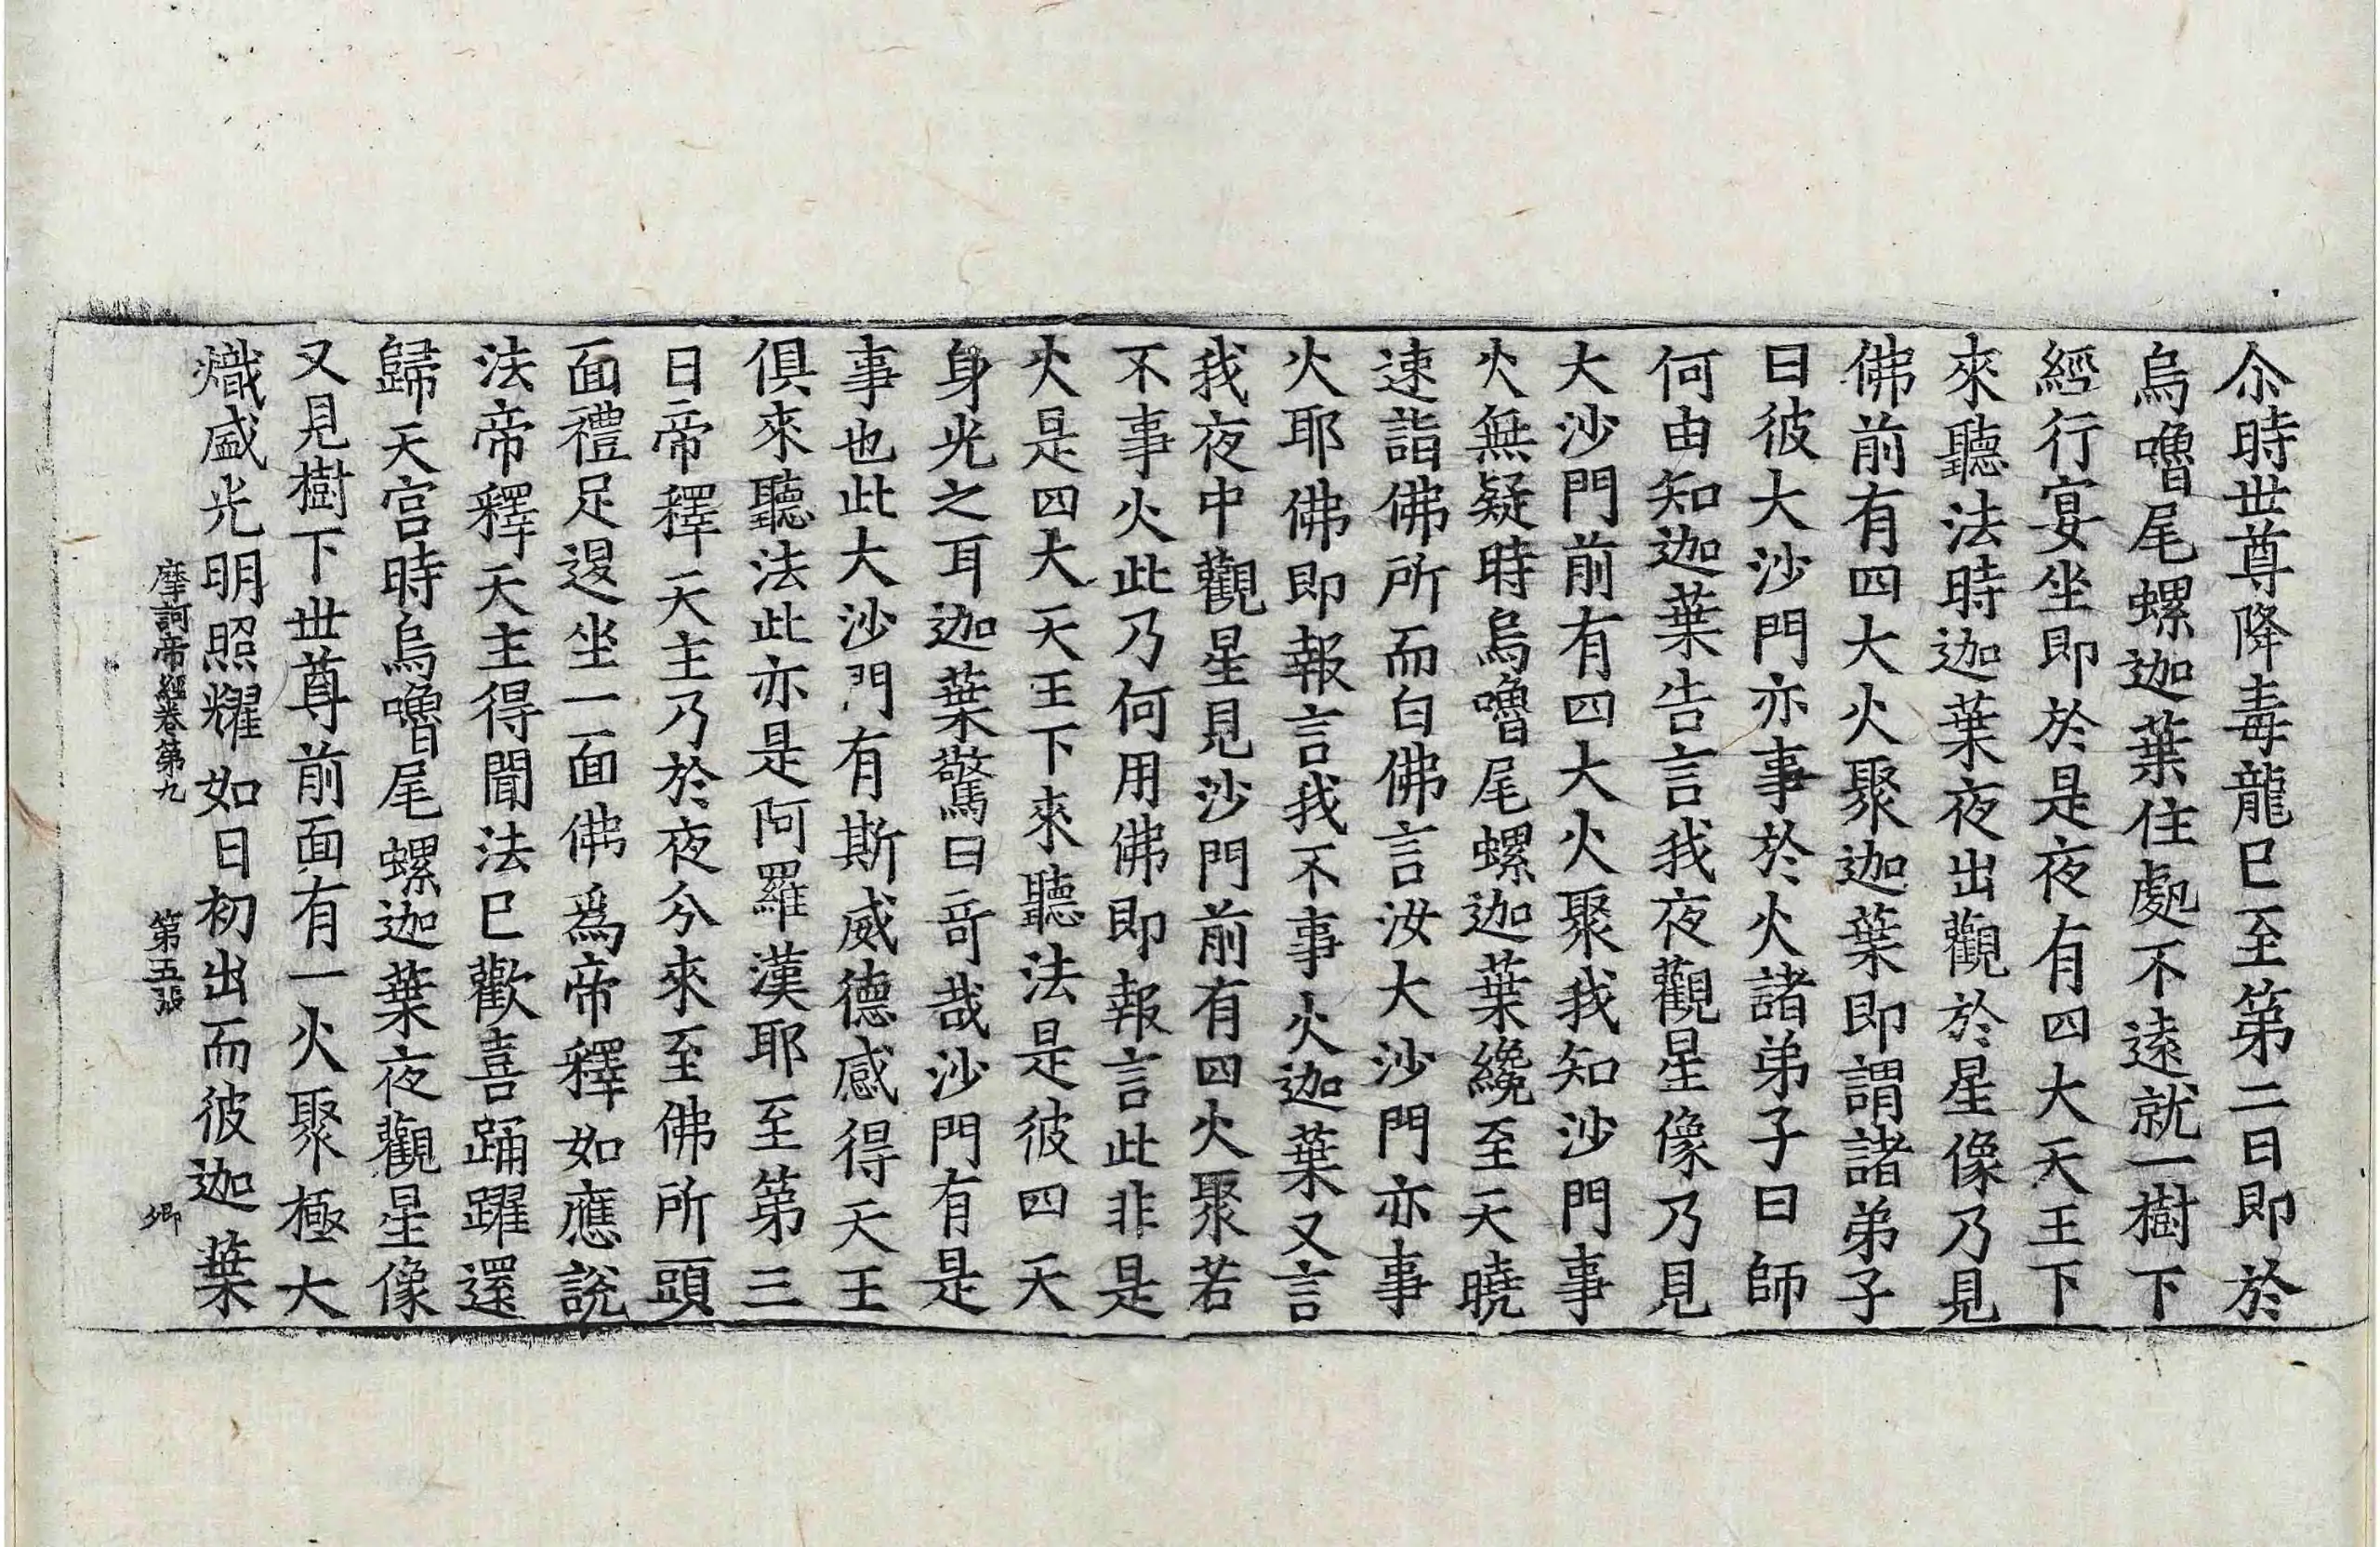 尒時世尊降毒龍已至第二日即於
烏嚕尾螺迦葉住處不遠就一樹下
經行宴坐即於是夜有四大天王下
來聽法時迦葉夜出觀於星像乃見
佛前有四大火聚迦葉即謂諸弟子
曰彼大沙門亦事於火諸弟子曰師
何由知迦葉告言我夜觀星像乃見
大沙門前有四大火聚我知沙門事
火無疑時烏嚕尾螺迦葉纔至天曉
速詣佛所而白佛言汝大沙門亦事
火耶佛即報言我不事火迦葉又言
我夜中觀星見沙門前有四火聚若
不事火此乃何用佛即報言此非是
火是四大天王下來聽法是彼四天
身光之耳迦葉驚曰奇哉沙門有是
事也此大沙門有斯威德感得天王
俱來聽法此亦是阿羅漢耶至第三
日帝釋天主乃於夜分來至佛所頭
面禮足退坐一面佛爲帝釋如應說
法帝釋天主得聞法已歡喜踊躍還
歸天宮時烏嚕尾螺迦葉夜觀星像
又見樹下世尊前面有一火聚極大
熾盛光明照耀如日初出而彼迦葉
摩訶帝經卷第九 第五張 卿